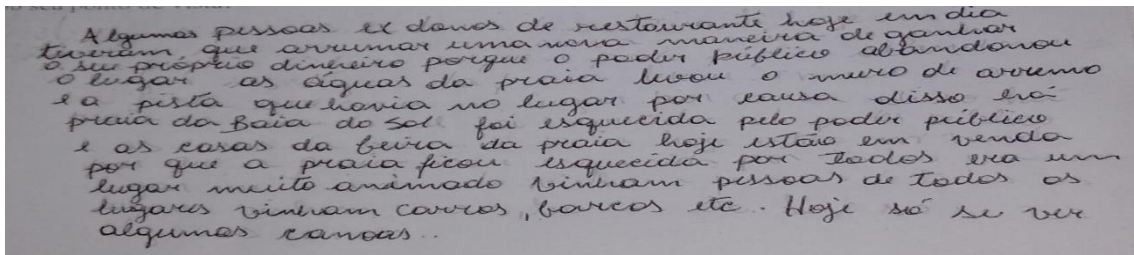 Algumas pessoas ex donos de restaurante hoje em dia
tiveram que arrumar uma nova maneira de ganhar
o seu próprio dinheiro porque o poder público abandonou
o lugar as águas da praia levou o muro de arrumo
e a pista que havia no lugar por causa disso
praia da Baia do Sol foi esquecida pelo poder público
e as casas da beira da praia hoje estão em venda
por que a praia ficou esquecida por todos era um
lugar muito animado vinham pessoas de todos os
lugares vinham carros, barcos etc. Hoje só se ver
algumas canoas..